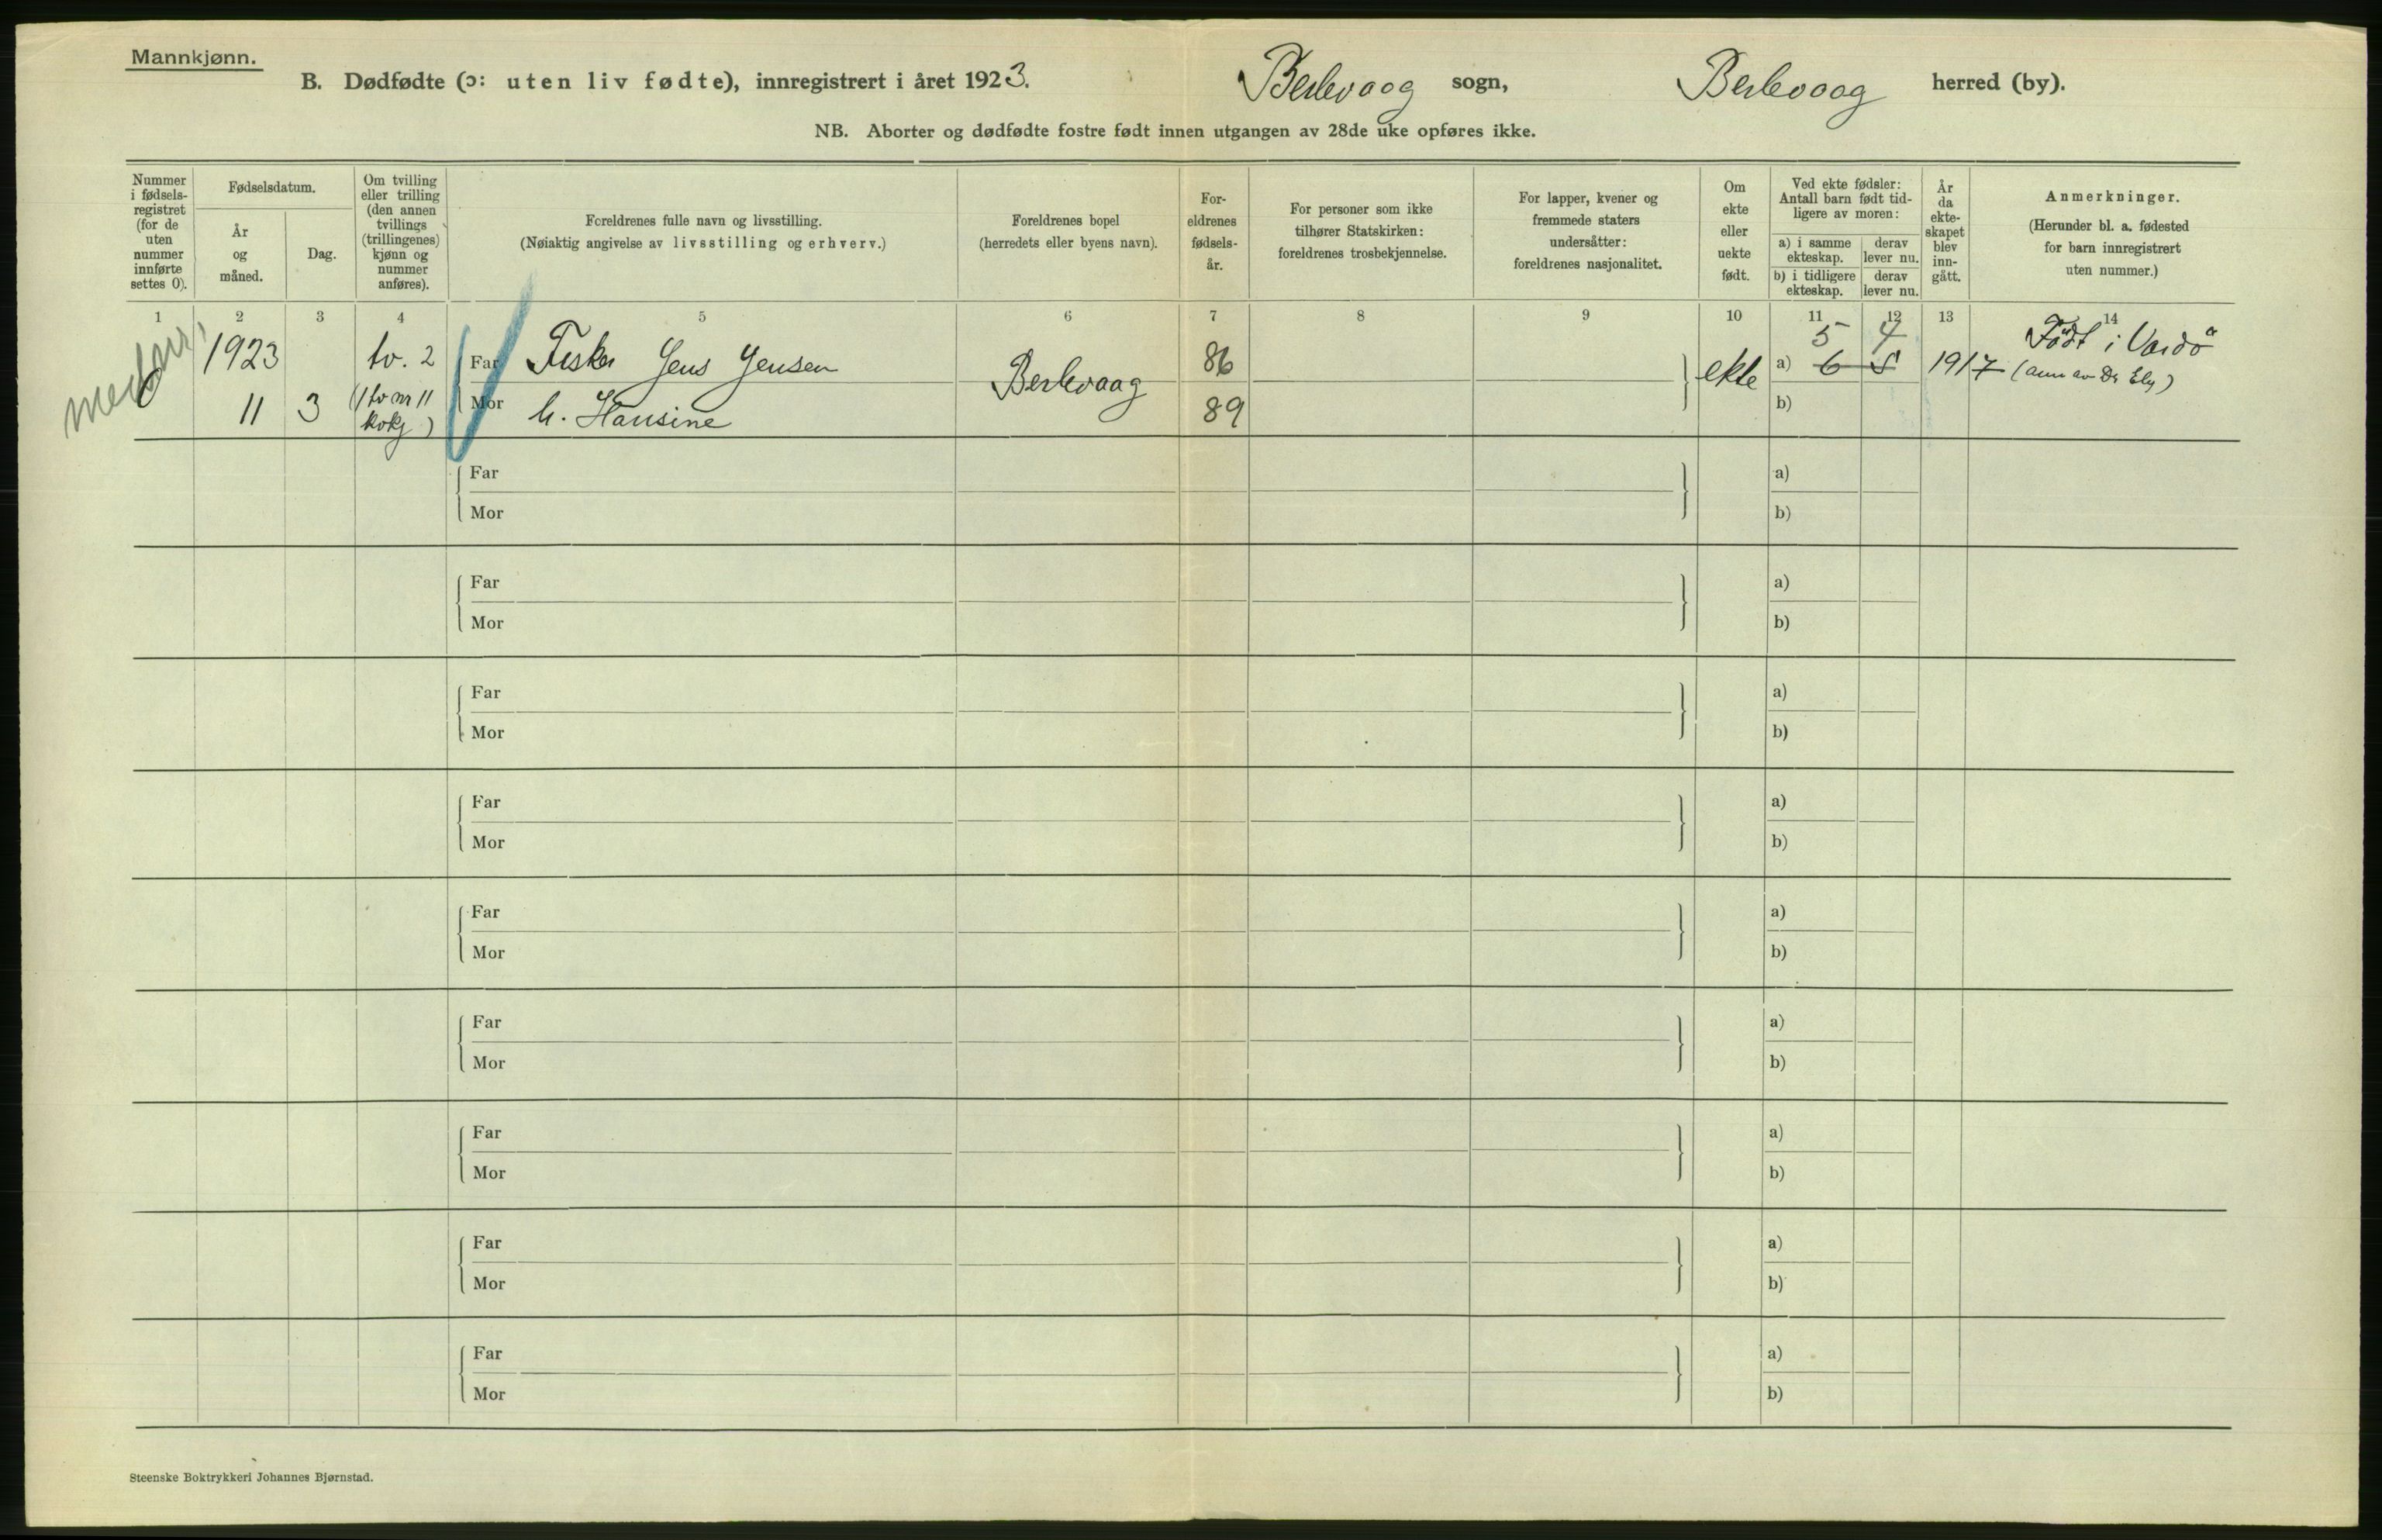 Mannkjønn.
B. Dødfødte (ɔ: uten liv fødte), innregistrert i året 1923. Berlevaag sogn, Berlevaag herred (by).
NB. Aborter og dødfødte fostre født innen utgangen av 28de uke opføres ikke.
Nummer i fødsels- registret (for de uten nummer innførte settes 0).
Fødselsdatum.
År og måned.
Dag.
Om tvilling eller trilling (den annen tvillings (trillingenes) kjønn og nummer anføres).
Foreldrenes fulle navn og livsstilling.
(Nøiaktig angivelse av livsstilling og erhverv.)
Foreldrenes bopel
(herredets eller byens navn).
For- eldrenes fødsels- år.
For personer som ikke tilhører Statskirken: foreldrenes trosbekjennelse.
For lapper, kvener og fremmede staters undersåtter: foreldrenes nasjonalitet.
Om ekte eller uekte født.
Ved ekte fødsler: Antall barn født tid- ligere av moren:
a) i samme ekteskap.
derav lever nu.
b) i tidligere ekteskap.
derav lever nu.
År da ekte- skapet blev inn- gått.
Anmerkninger.
(Herunder bl. a. fødested for barn innregistrert uten nummer.)
1 2 3 4 5 6 7 8 9 10 11 12 13 14
5 4 Født i Vardö
0 1923 tv. 2 Far Fisker Jens Jensen Berlevaag 86 ekte a) 6 5 1917 (anm av Dr
11 3 (1 tv nr 11 Mor h. Hansine 89 b)
kvkj)
Far a)
Mor b)
Far a)
Mor b)
Far a)
Mor b)
Far a)
Mor b)
Far a)
Mor b)
Far a)
Mor b)
Far a)
Mor b)
Far a)
Mor b)
Far a)
Mor b)
Steenske Boktrykkeri Johannes Bjørnstad.